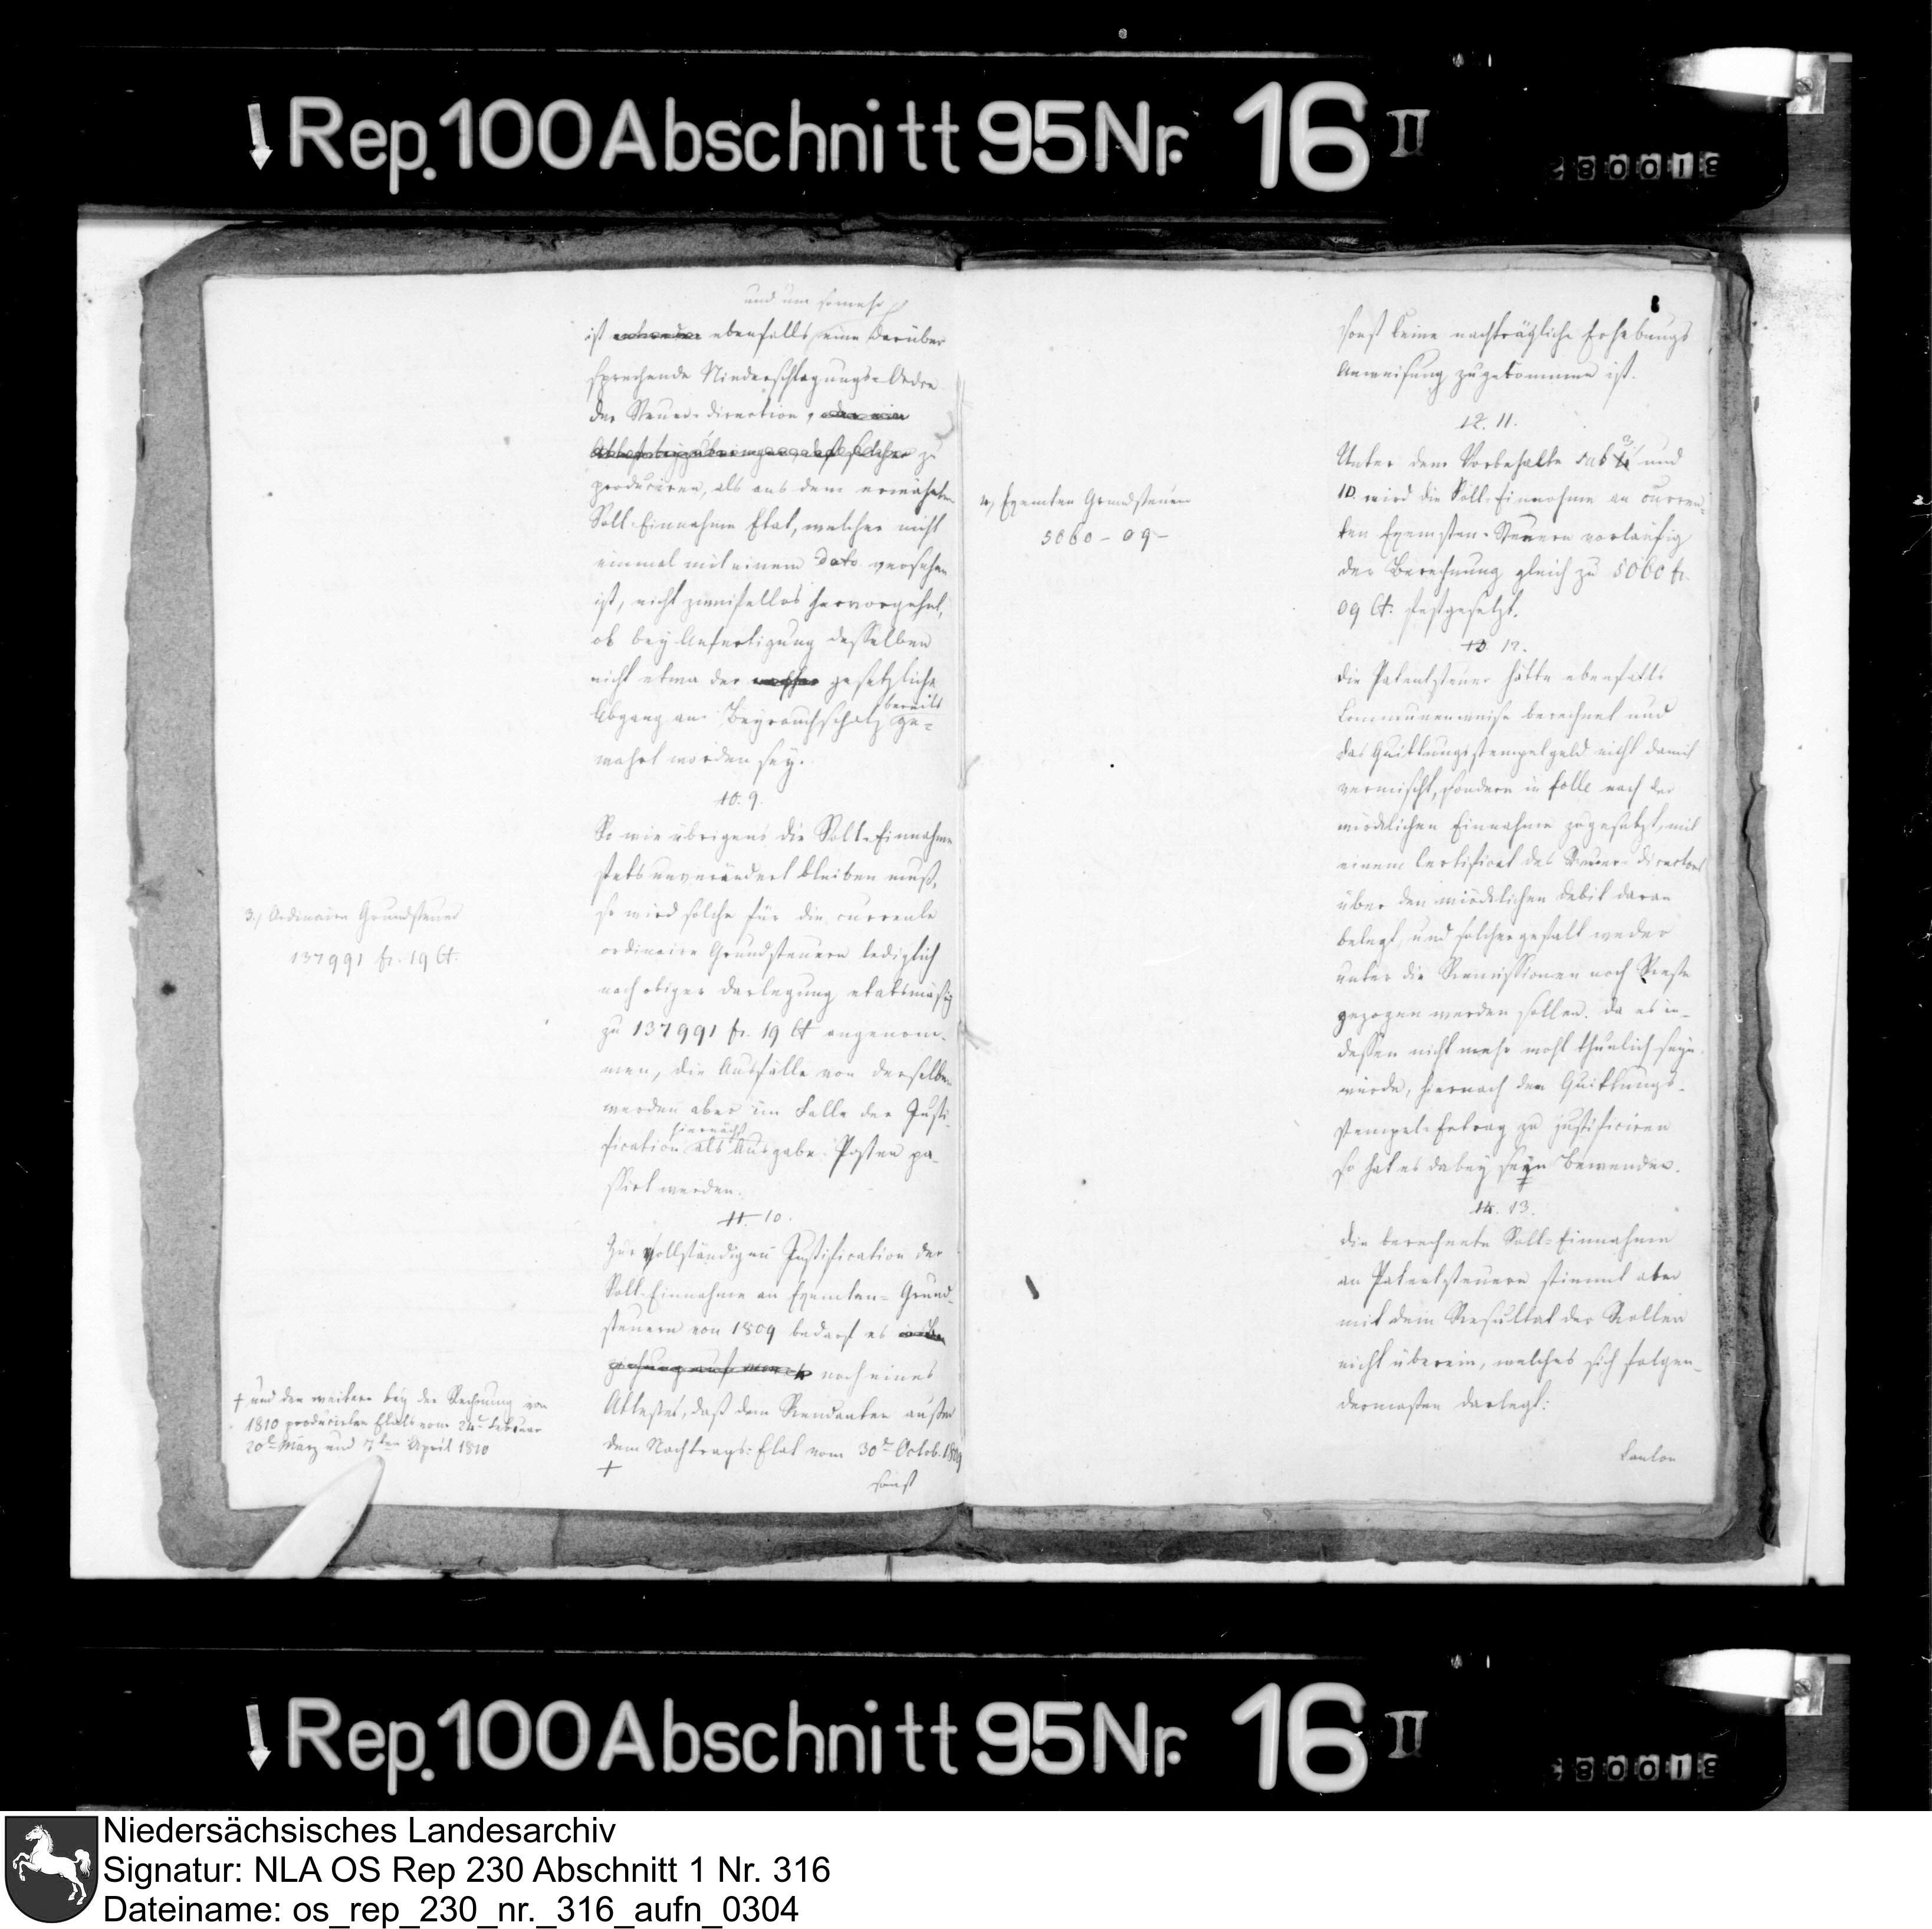 Rep. 100 Abschnitt 95 Nr. 16 II
und um somehr
ist ebenfalls eine darüber
sprechende Niederschlagungs-Ordre
der Steuer-direction, oder ein
zu
produciren, als aus dem erwähnten
Soll-Einnahme Etat, welcher nicht
einmal mit einem dato versehen
ist, nicht zweifellos hervorgehet,
ob bey Anfertigung desselben
nicht etwa der gesetzliche
bereits
Abgang an Beyrauchschatz ge-
wahrt worden sey.
10. 9.
So wie übrigens die Soll-Einnahme
stets unverändert bleiben muß,
so wird solche für die currente
ordinaire Grundsteuern lediglich
nach obiger darlegung etatsmäßig
zu 137991 fr. 19 Ct angenom-
men, die Ausfälle von derselben
werden aber im Falle der Justi-
hiernächst
fication als Ausgabe-Posten pa-
ssirt werden.
3.) Ordinaire Grundsteuer
137991 fr. 19 Ct.
11. 10.
Zur vollständigen Justification der
Soll-Einnahme an Exemten-Grund-
steuern von 1809 bedarf es
noch eines
Attestes, daß dem Rendanten außer
dem Nachtrags-Etat vom 30t Octob. 1809
+
sonst
+ und den weitern bey der Rechnung von
1810 producirten Etats vom 24t Februar
20t März und 7ten April 1810
sonst keine nachträgliche Erhebungs
Anweisung zugekommen ist.
12. 11.
Unter dem Vorbehalte sub 3 und
10. wird die Soll-Einnahme an curren-
ten Exemten-Steuern vorläufig
der Berechnung gleich zu 5060 fr.
09 Ct. festgesetzt.
4.) Exemten Grundsteuer
5060 - 09 -
13. 12.
die Patentsteuer hätte ebenfalls
Communenweise berechnet und
das Quittungsstempelgeld nicht damit
vermischt, sondern in folle nach der
würklichen Einnahme zugesetzt, mit
einem Certificat des Steuer-directors
über den würklichen debit daran
belegt, und solchergestalt weder
unter die Remissionen noch Reste
gezogen werden sollen. da es in-
dessen nicht mehr wohl thunlich seyn
würde, hiernach den Quittungs-
stempel-Ertrag zu justificiren
so hat es dabey seyn Bewenden.
14. 13.
die berechnete Soll-Einnahme
an Patentsteuern stimmt aber
mit dem Resultat der Rollen
nicht überein, welches sich folgen-
dermaßen darlegt:
Canton
Rep. 100 Abschnitt 95 Nr. 16 II
Niedersächsisches Landesarchiv
Signatur: NLA OS Rep 230 Abschnitt 1 Nr. 316
Dateiname: os_rep_230_nr._316_aufn_0304